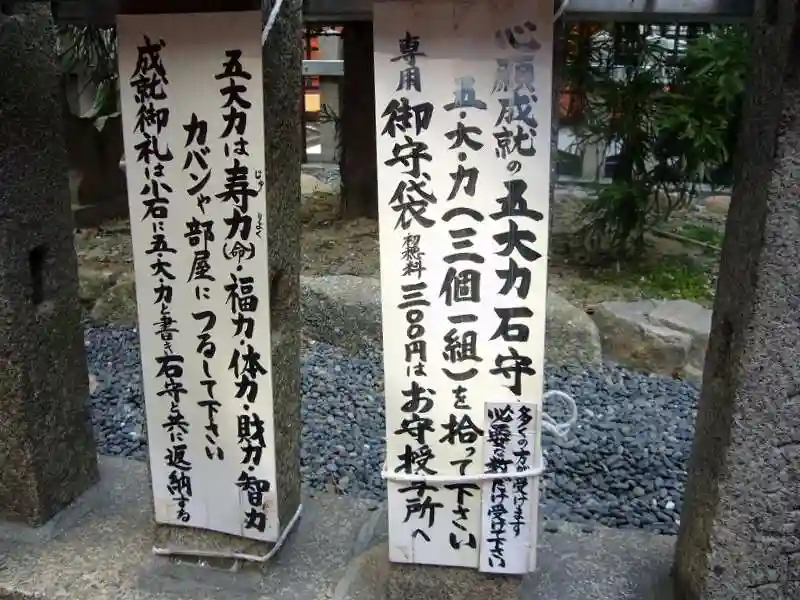 心願成就の五大力石守
五・大・力(三個一組)を拾って下さい
専用御守袋 初穂料三〇〇円はお守授与所へ
多くの方が受けます
必要な数だけ受け下さい
五大力は寿力(命)・福力・体力・財力・智力
じゅ りょく
カバンや部屋につるして下さい
成就御礼は小石に五・大・力と書き石守と共に返納する